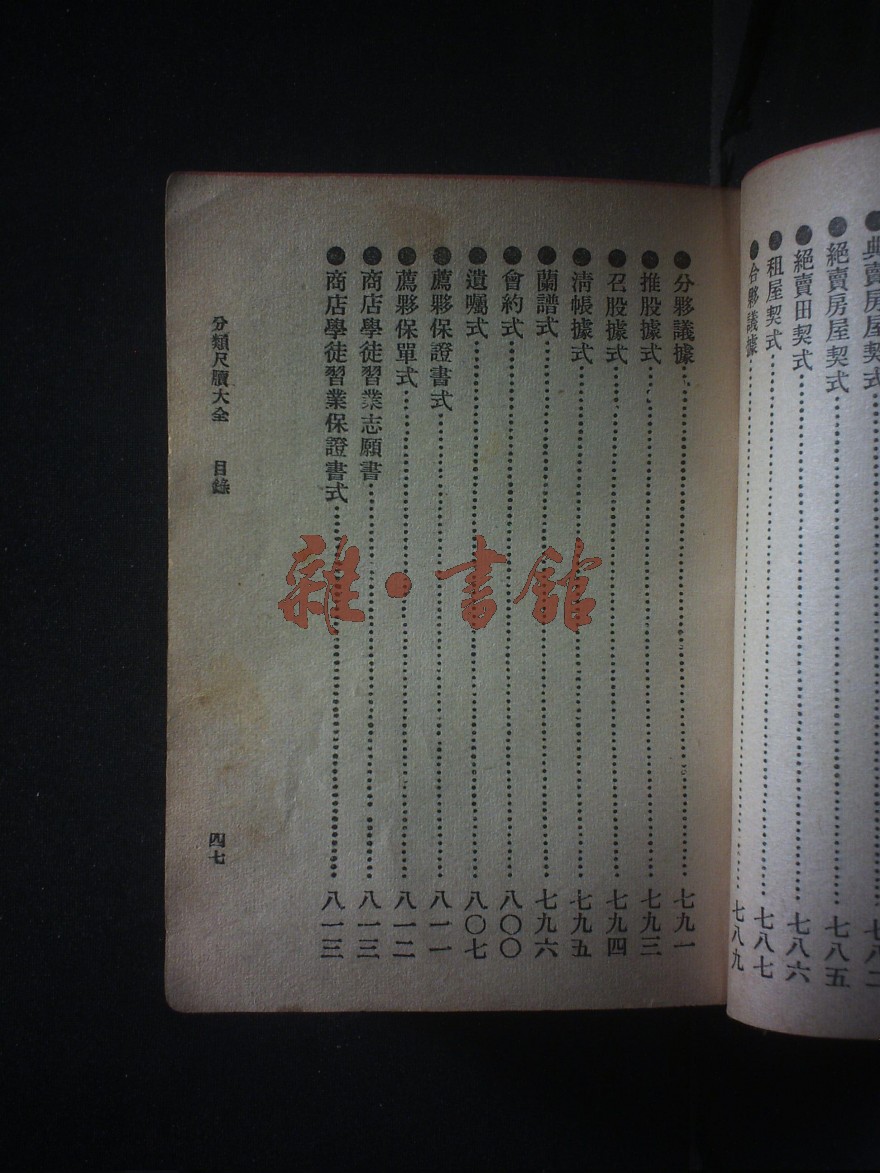 典賣房屋契式
絕賣房屋契式……七八五
絕賣田契式……七八六
租屋契式……七八七
合夥議據……七八九
分夥議據……七九一
推股據式……七九三
召股據式……七九四
清帳據式……七九五
蘭譜式……七九六
會約式……八〇〇
遺囑式……八〇七
薦夥保證書式……八一一
薦夥保單式……八一二
商店學徒習業志願書……八一三
商店學徒習業保證書式……八一三
分類尺牘大全 目錄 四七
雜·書館